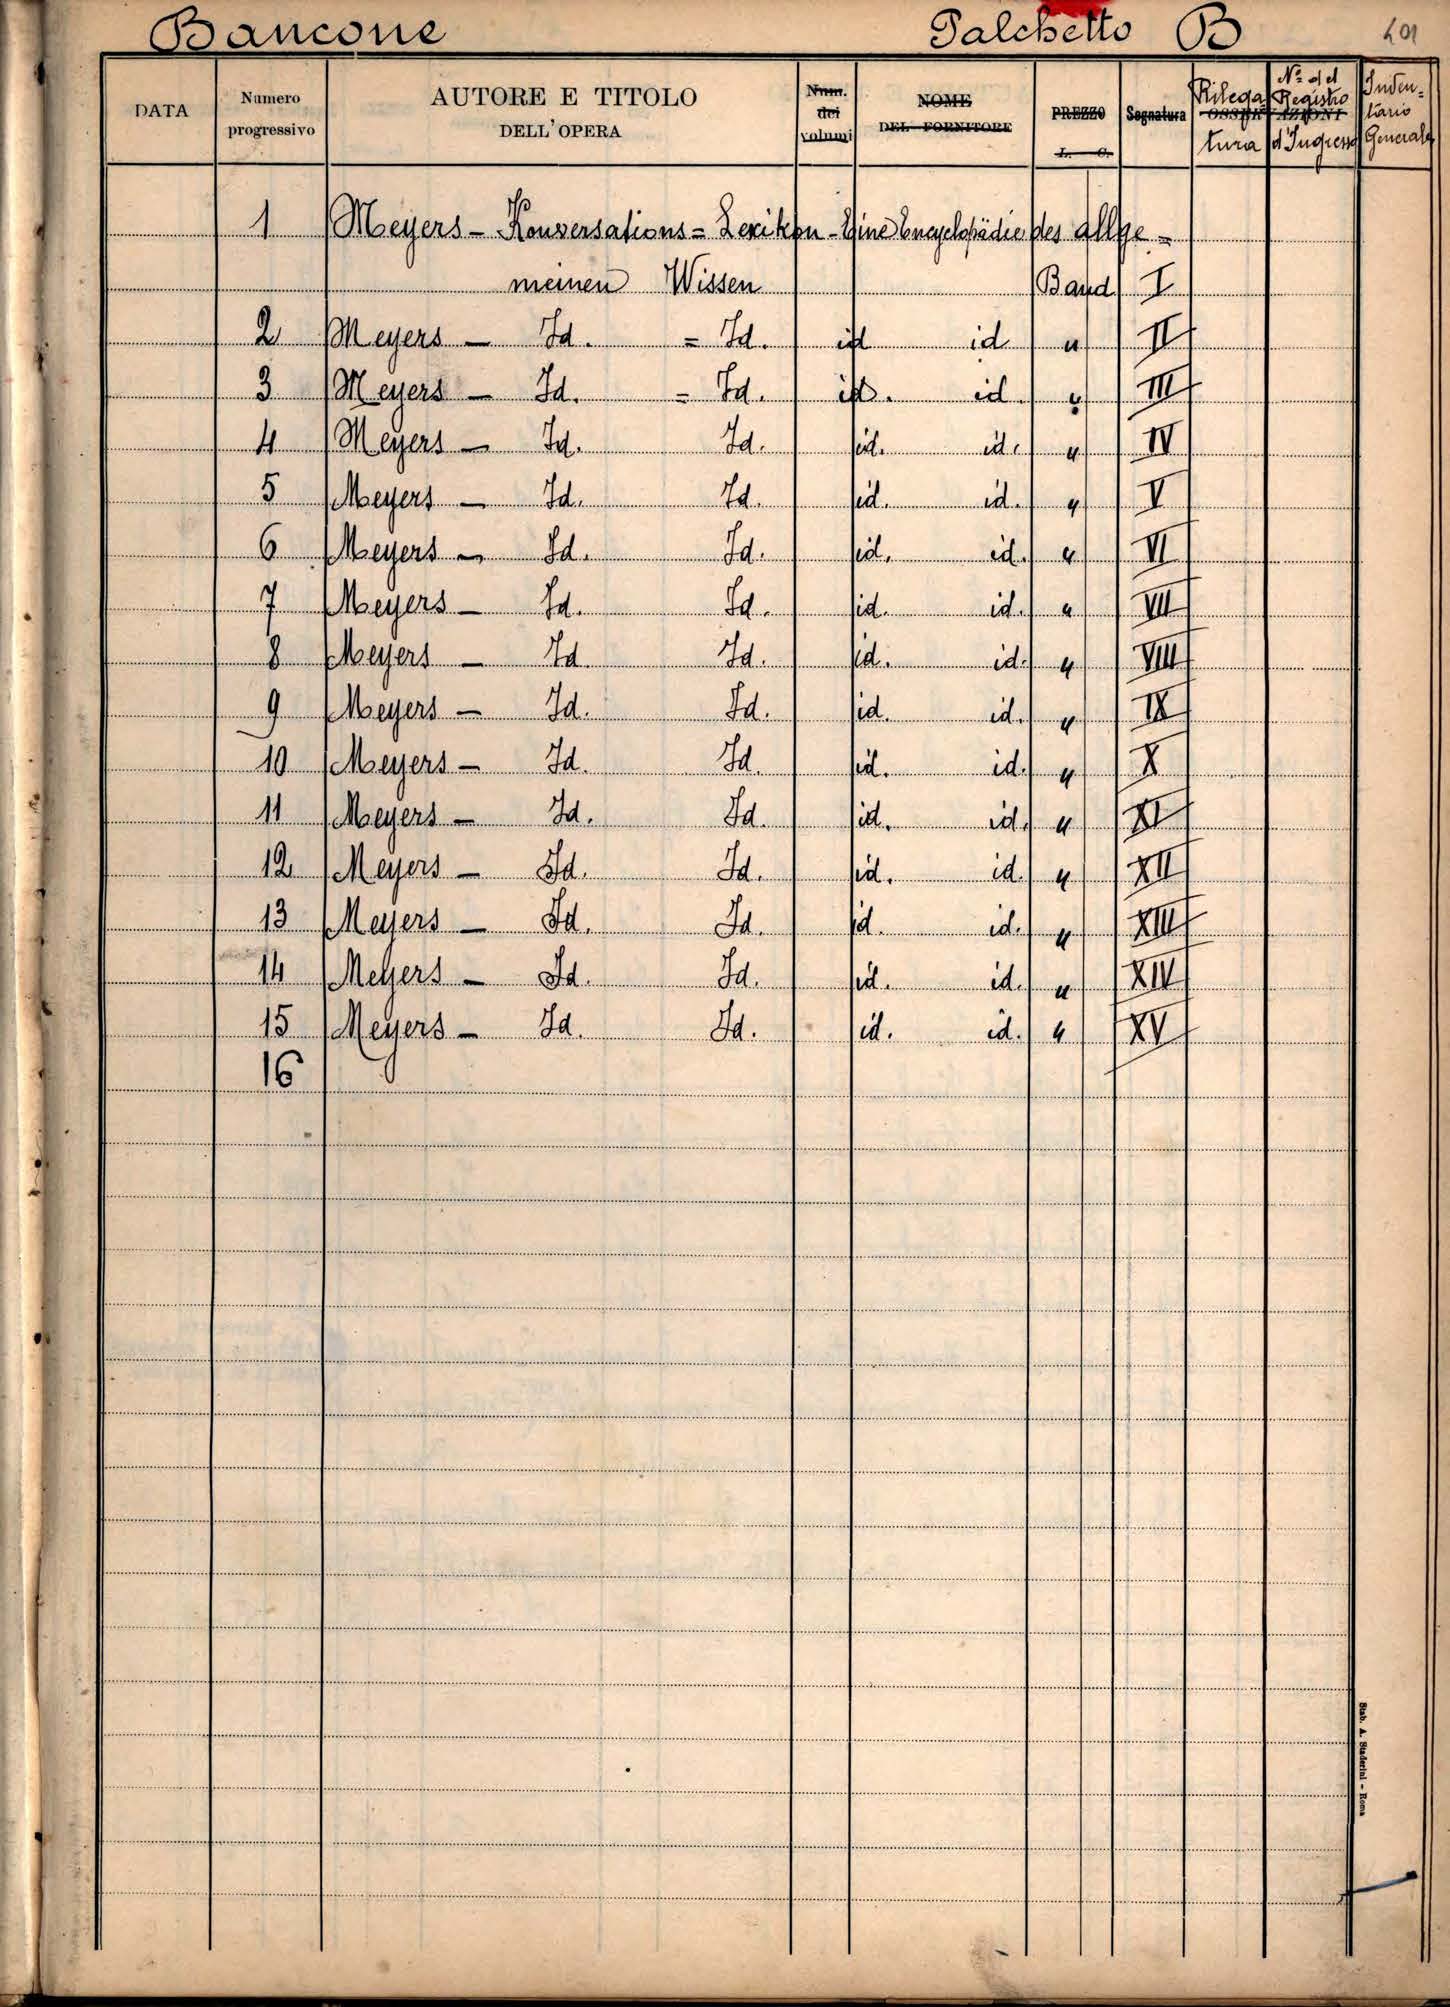 Bancone Palchetto B 401
DATA Numero progressivo AUTORE E TITOLO DELL'OPERA Num. dei volumi NOME DEL FORNITORE PREZZO L. C. Segnatura OSSERVAZIONI Rilega tura N.º del Registro d'Ingresso Inven= tario Generale
1 Meyers - Konversations = Lexikon - Eine Encyclopädie des allge =
meinen Wissen Band I
2 Meyers - Id. = Id. id id " II
3 Meyers - Id. = Id. id. id. " III
4 Meyers - Id. Id. id. id. " IV
5 Meyers - Id. Id. id. id. " V
6 Meyers - Id. Id. id. id. " VI
7 Meyers - Id. Id. id. id. " VII
8 Meyers - Id. Id. id. id. " VIII
9 Meyers - Id. Id. id. id. " IX
10 Meyers - Id. Id. id. id. " X
11 Meyers - Id. Id. id. id. " XI
12 Meyers - Id. Id. id. id. " XII
13 Meyers - Id. Id. id. id. " XIII
14 Meyers - Id. Id. id. id. " XIV
15 Meyers - Id. Id. id. id. " XV
16
Stab. A. Staderini - Roma